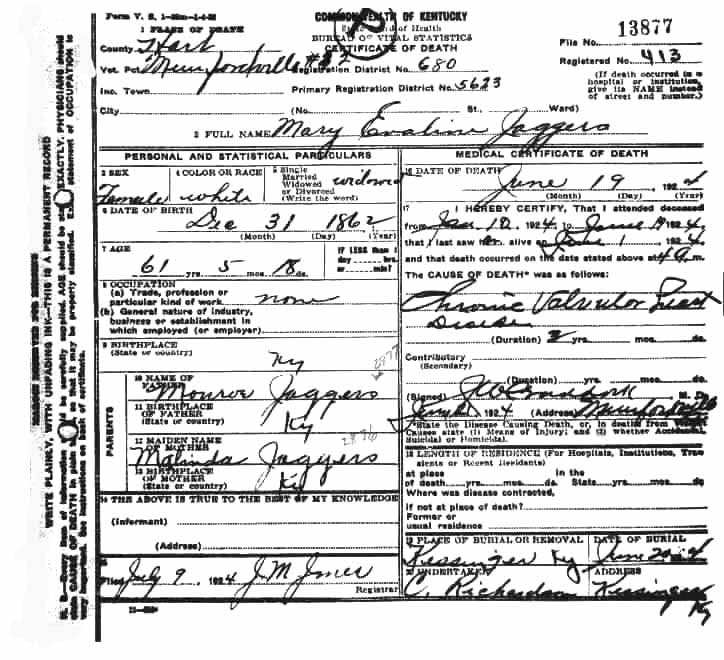 Form V. S. 1
COMMONWEALTH OF KENTUCKY
State Board of Health
BUREAU OF VITAL STATISTICS
CERTIFICATE OF DEATH
File No. 13877
Registered No. 413
(If death occurred in a hospital or institution, give its NAME instead of street and number.)
1 PLACE OF DEATH
County Hart
Vot. Pct. Munfordville #2 Registration District No. 680
Inc. Town Primary Registration District No. 5623
City (No. St., Ward)
2 FULL NAME Mary Evaline Jaggers
PERSONAL AND STATISTICAL PARTICULARS
3 SEX Female
4 COLOR OR RACE white
5 Single Married Widowed or Divorced (Write the word) widowed
6 DATE OF BIRTH Dec 31 1862
(Month) (Day) (Year)
7 AGE 61 yrs. 5 mos. 18 ds.
IF LESS than 1 day hrs. or min?
8 OCCUPATION
(a) Trade, profession or particular kind of work none
(b) General nature of industry, business or establishment in which employed (or employer)
9 BIRTHPLACE
(State or country) Ky
2877
PARENTS
10 NAME OF FATHER Monroe Jaggers
11 BIRTHPLACE OF FATHER
(State or country) Ky
2876
12 MAIDEN NAME OF MOTHER Malinda Jaggers
13 BIRTHPLACE OF MOTHER
(State or country) Ky
14 THE ABOVE IS TRUE TO THE BEST OF MY KNOWLEDGE
(Informant)
(Address)
Filed July 9, 1924 J M Jones Registrar
MEDICAL CERTIFICATE OF DEATH
16 DATE OF DEATH June 19, 1924
(Month) (Day) (Year)
17 I HEREBY CERTIFY, That I attended deceased
from Jan 12, 1924, to June 19 1924,
that I last saw alive on June 1, 1924,
and that death occurred on the date stated above at 4 a m.
The CAUSE OF DEATH* was as follows:
Chronic Valvular Heart
Disease
(Duration) 2 yrs. mos. ds.
Contributory
(Secondary)
(Duration) yrs. mos. ds.
(Signed) M. D.
1924 (Address) Munfordville
*State the Disease Causing Death, or, in deaths from Violent Causes state (1) Means of Injury; and (2) whether Accidental, Suicidal or Homicidal.
18 LENGTH OF RESIDENCE (For Hospitals, Institutions, Transients or Recent Residents)
at place of death yrs. mos. ds.
In the State yrs. mos. ds.
Where was disease contracted,
if not at place of death?
Former or usual residence
19 PLACE OF BURIAL OR REMOVAL Kessinger Ky
DATE OF BURIAL June 20 1924
20 UNDERTAKER C. Richardson
ADDRESS Kessinger Ky
WRITE PLAINLY, WITH UNFADING INK—THIS IS A PERMANENT RECORD